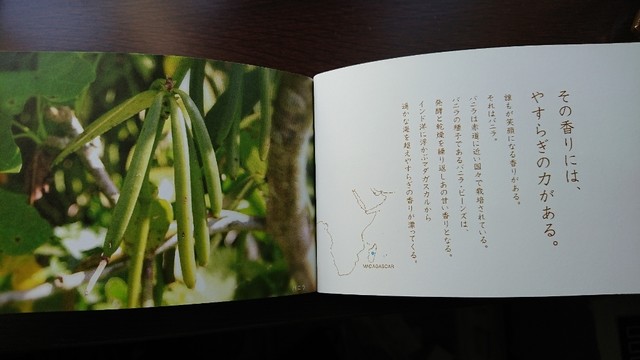 その香りには、
やすらぎの力がある。
誰もが笑顔になる香りがある。
それは、バニラ。
バニラは赤道に近い国々で栽培されている。
バニラの種子であるバニラ・ビーンズは、
発酵と乾燥を繰り返しあの甘い香りとなる。
インド洋に浮かぶマダガスカルから
遥かな海を超えやすらぎの香りが漂ってくる。
MADAGASCAR